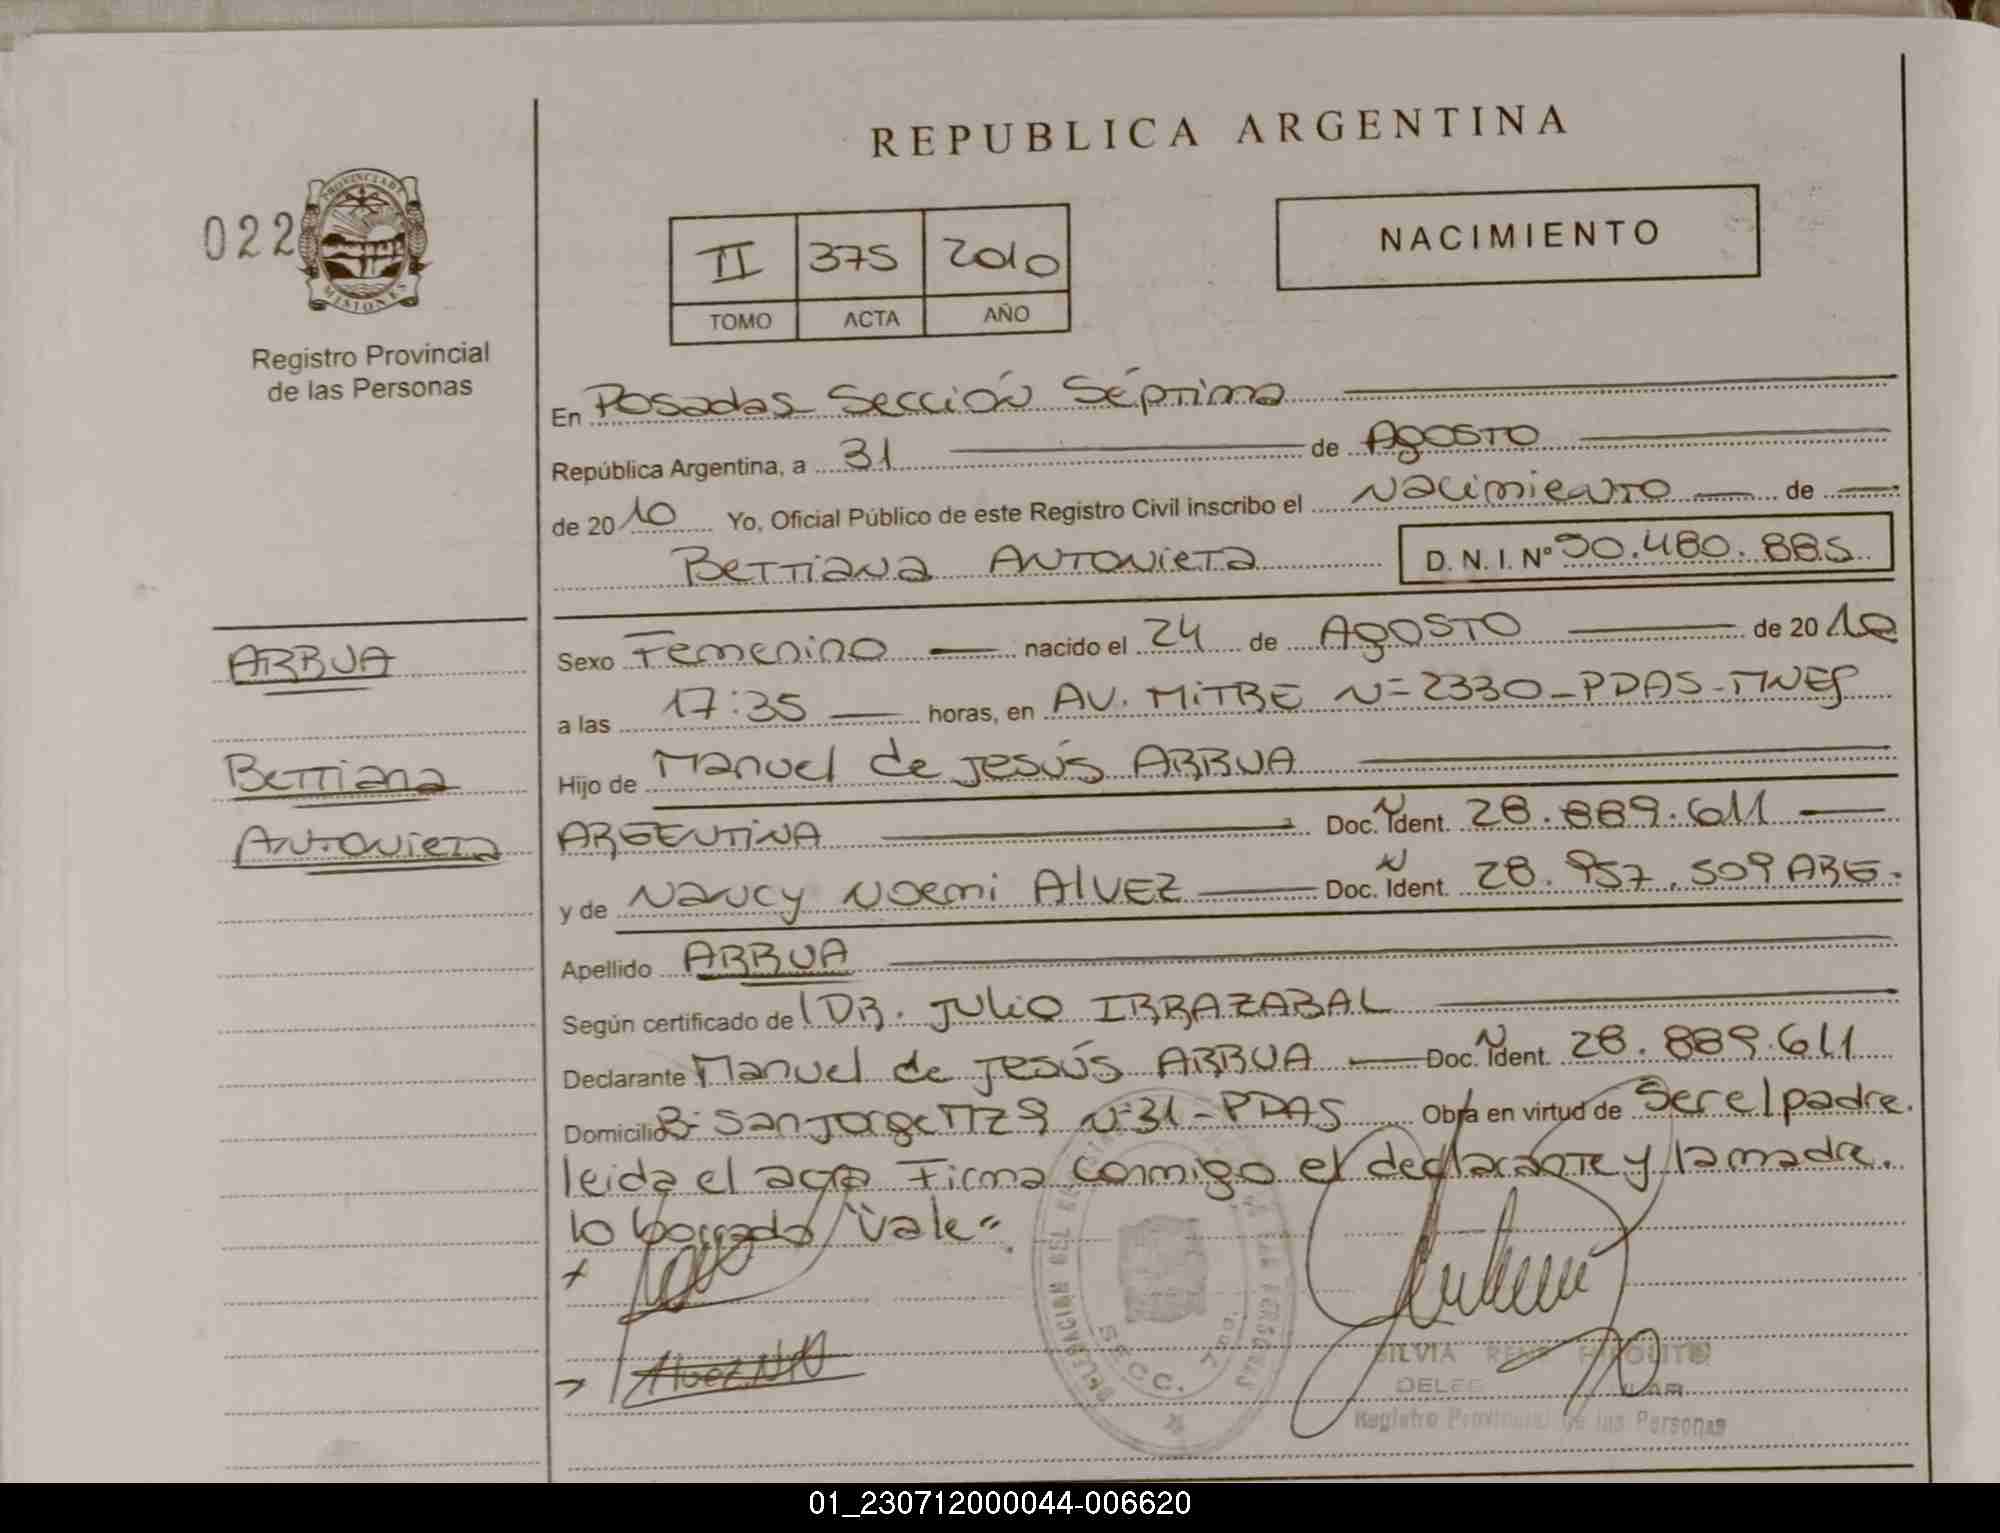 REPUBLICA ARGENTINA
022
PROVINCIA DE
MISIONES
Registro Provincial
de las Personas
II 375 2010
TOMO ACTA AÑO
NACIMIENTO
En Posadas Sección Séptima
República Argentina, a 31 de Agosto
de 2010 Yo, Oficial Público de este Registro Civil inscribo el Nacimiento de
Bettiana Antonieta D. N. I. Nº 50.480.885
ARRUA
Bettiana
Antonieta
Sexo Femenino nacido el 24 de Agosto de 2010
a las 17:35 horas, en AV. MITRE N=2330-PDAS-MNES
Hijo de Manuel de Jesús ARRUA
ARGENTINA Doc. N Ident. 28.889.611
y de Nancy Noemi Alvez Doc. N Ident. 28.957.509 ARG.
Apellido ARRUA
Según certificado de DR. Julio IRRAZABAL
Declarante Manuel de Jesús ARRUA Doc. N Ident. 28.889.611
Domicilio B- San Jorge MZ 9 N=31-PDAS Obra en virtud de Ser el padre.
leida el acta Firma conmigo el declarante y la madre.
lo borrado "Vale".
Alvez N N
DELEGACION DEL REGISTRO PROVINCIAL DE LAS PERSONAS
SECC. 7ma.
SILVIA RENE HIPOLITO
Registro Provincial de las Personas
01_230712000044-006620